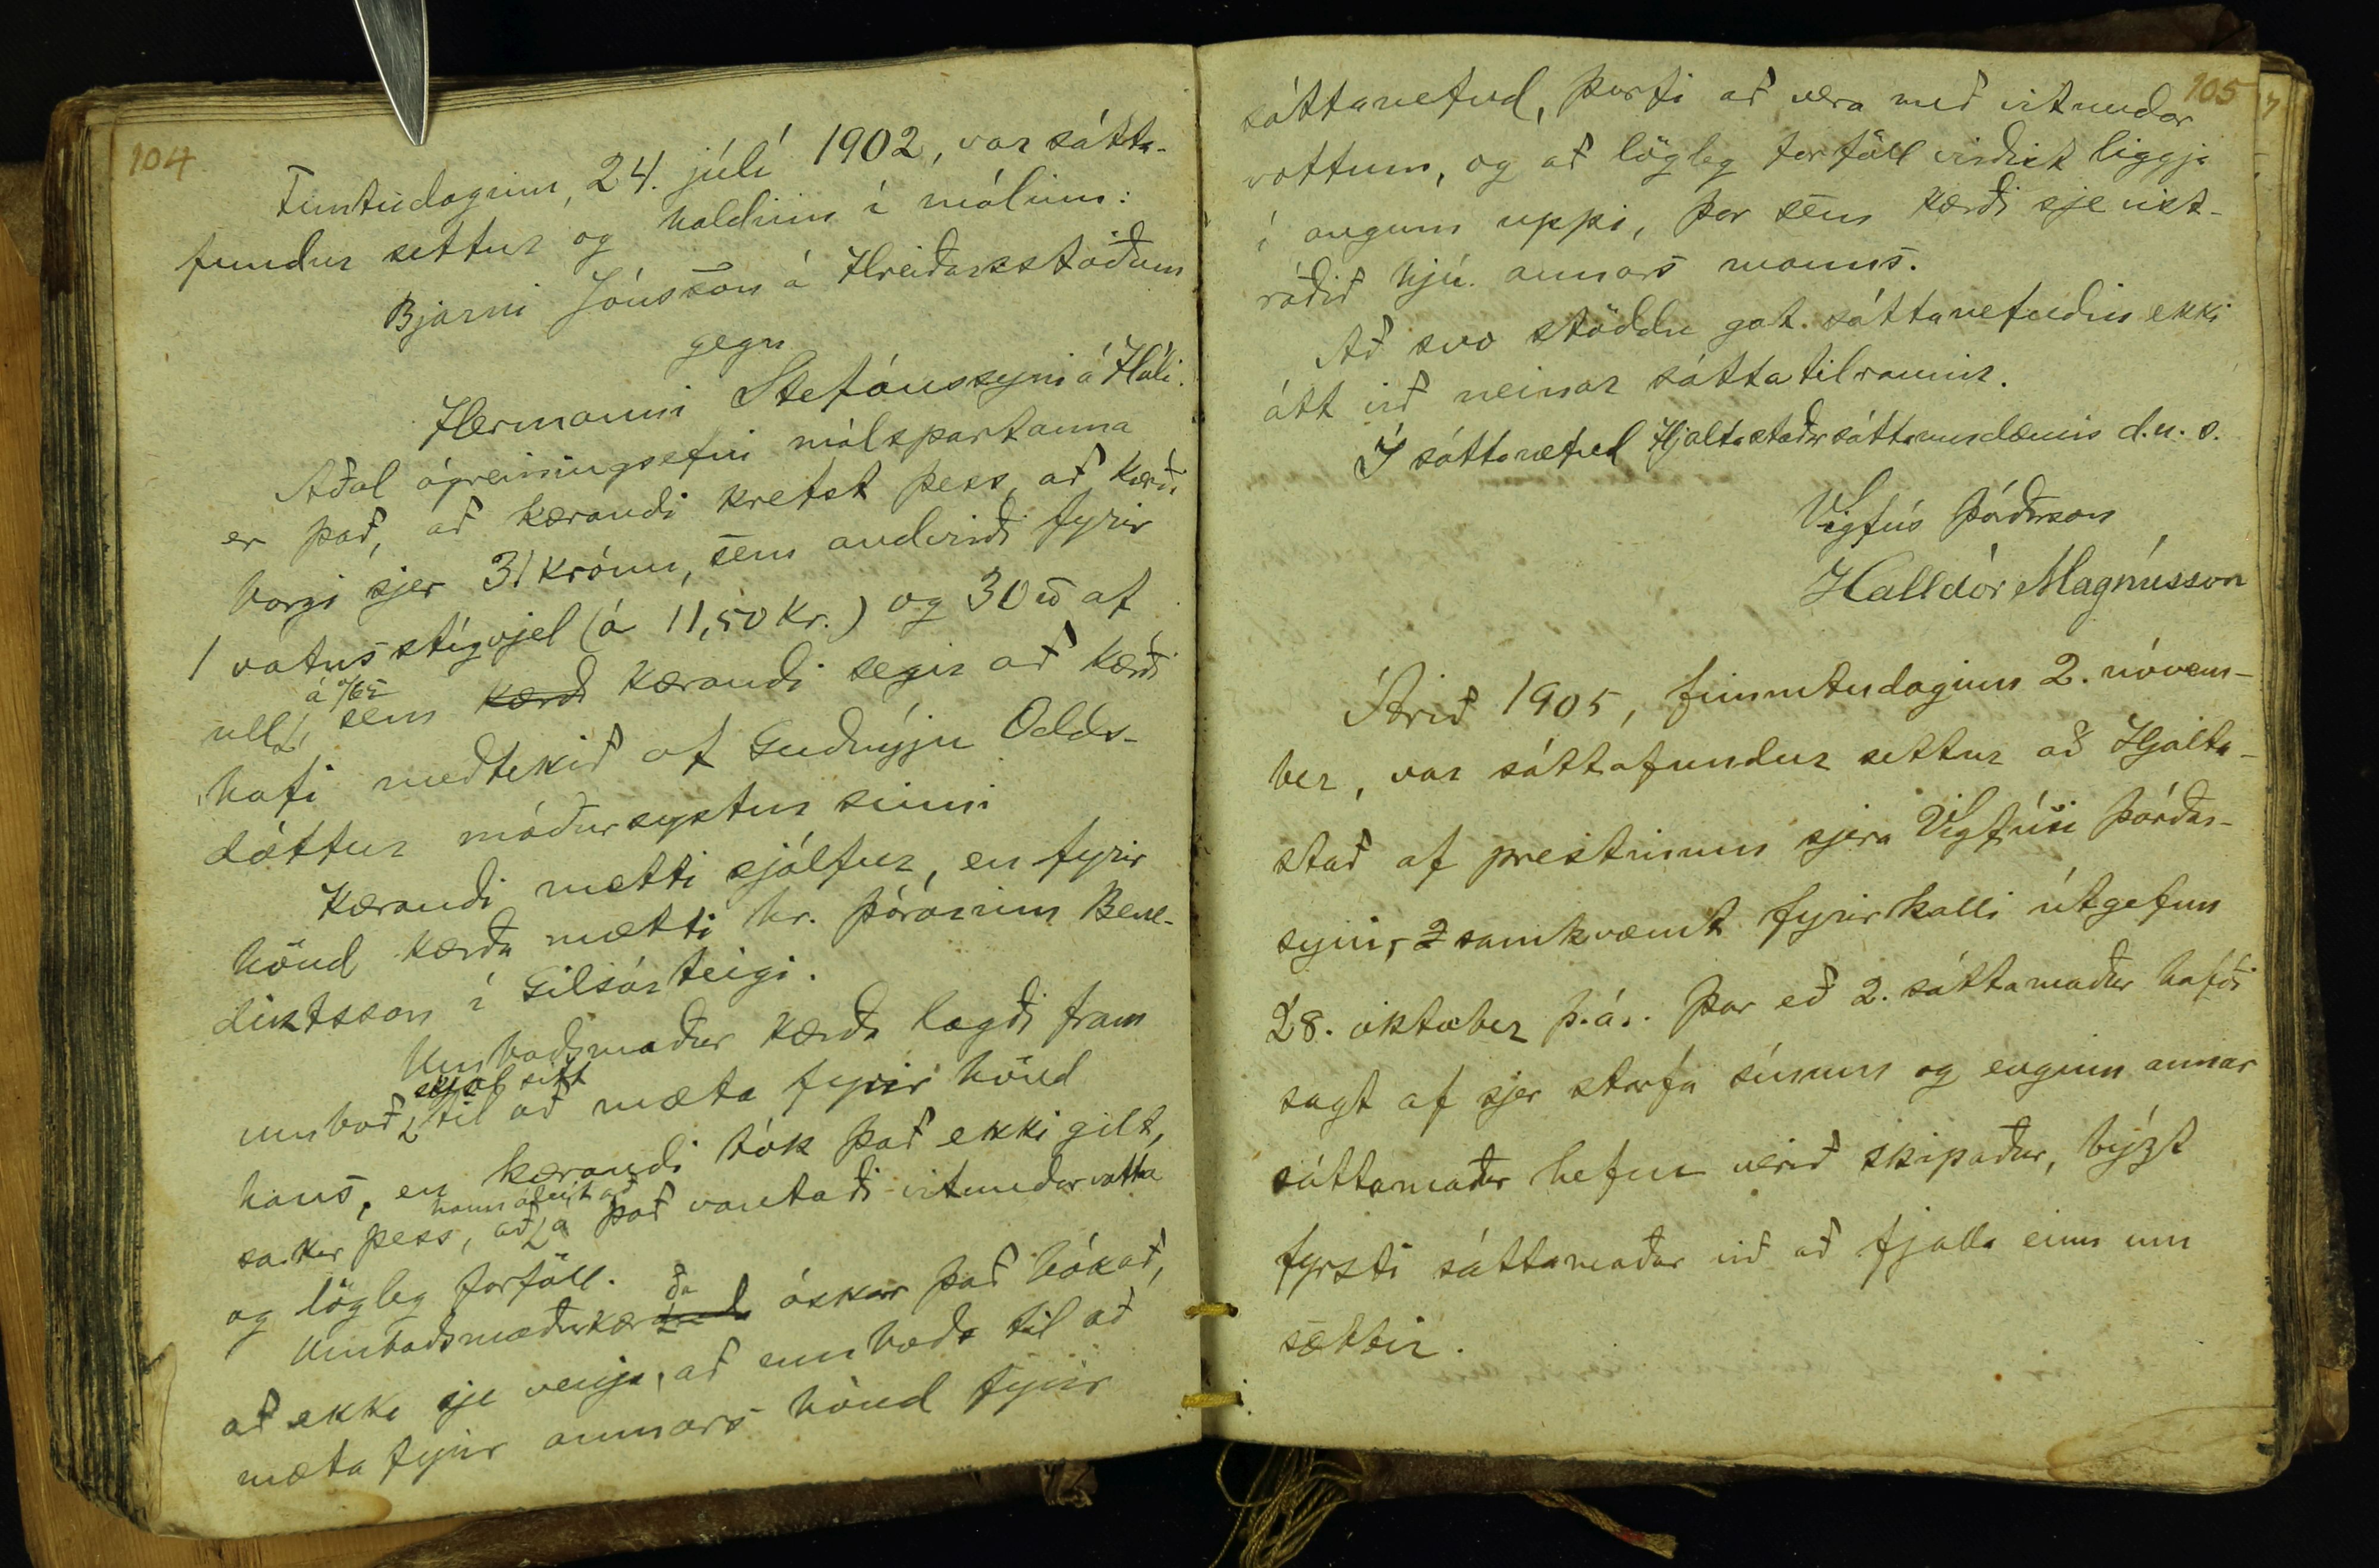 104
Fimtudaginn, 24. júlí 1902, var sátta-
fundur settur og haldinn í málinu:
Bjarni Jónsson á Hreiðarsstöðum
gegn
Hermanni Stefánssyni á Hóli.
Aðal ágreiningsefni málspartanna
er það, að kærandi krefst þess, að kærði
borgi sjer 31 krónu, sem andvirði fyrir
1 vatnsstígvjel (á 11,50 kr.) og 30 ℔ af
á 0/65
ull, sem kærði kærandi segir að kærði
hafi meðtekið af Guðnýju Odds-
dóttur móðursystur sinni
Kærandi mætti sjálfur, en fyrir
hönd kærða mætti hr. Þórarinn Bene-
diktsson í Gilsárteigi.
Umboðsmaður kærða lagði fram
umboð til að mæta fyrir hönd
hans, en kærandi tók það ekki gilt,
hann áleit að
sakir þess, að á það vantaði vitundarvotta
og lögleg forföll.
ða
Umboðsmaður kær óskar það bókað,
að ekki sje venja, að umboð til að
mæta fyrir annars hönd fyrir
105
sáttanefnd, þurfi að vera með vitundar
vottum, og að lögleg forföll virðist liggja
í augum uppi, þar sem kærði sje vist-
ráðið hjú annars manns.
Að svo stöddu gat sáttanefndin ekki
átt við neinar sáttatilraunir.
Í sáttanefnd Hjaltastaðarsáttaumdæmis d.u.s.
Vigfús Þórðarson
Halldór Magnússon
Árið 1905, fimmtudaginn 2. nóvem-
ber, var sáttafundur settur að Hjalta-
stað af prestinum sjera Vigfúsi Þórðar-
syni, samkvæmt fyrirkalli útgefnu
28. október þ.á. Þar eð 2. sáttamaður hafði
sagt af sjer starfa sínum og enginn annar
sáttamaður hefur verið skipaður, býzt
fyrsti sáttamaður við að fjalla einn um
sættir.